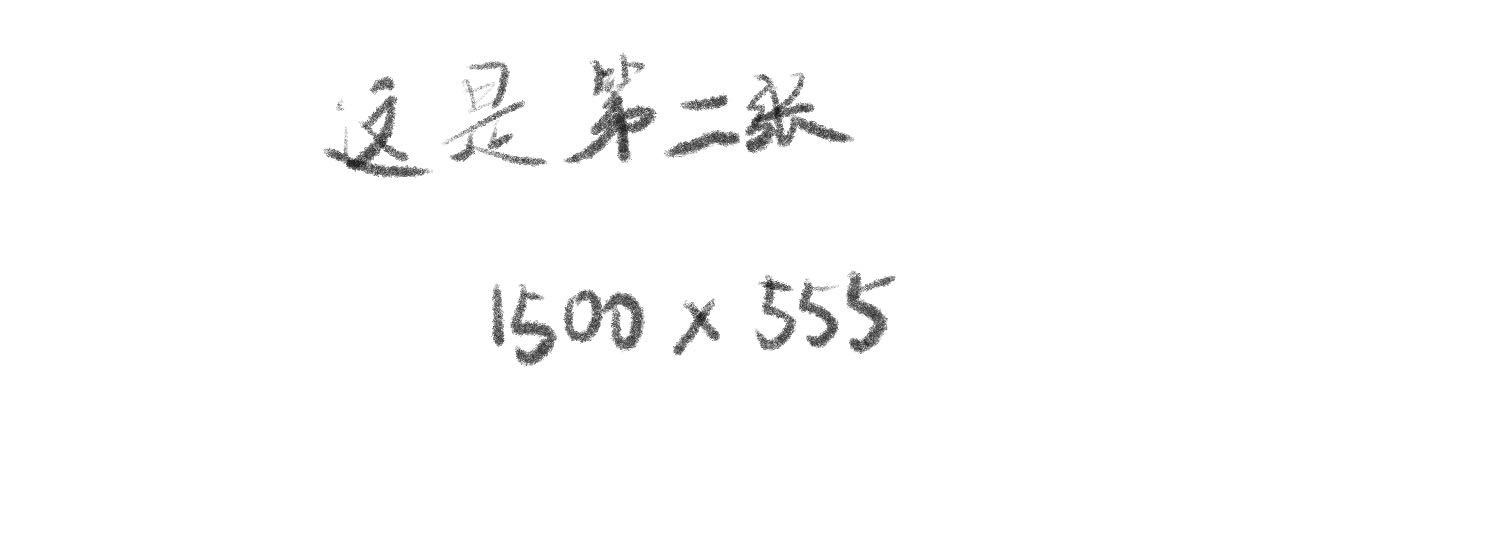 这是第二张
1500 x 555